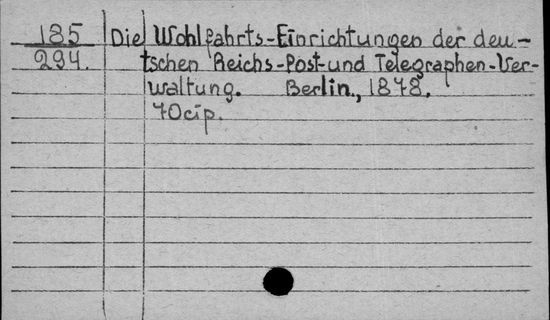 185 Die Wohlfahrts-Einrichtungen der deu-
294. tschen Reichs-Post-und Telegraphen-Ver-
waltung. Berlin., 1878.
70 cip.